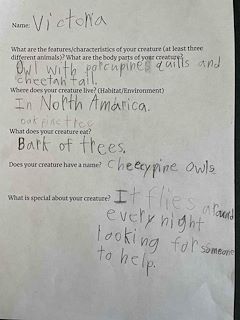 Name: Victoria
What are the features/characteristics of your creature (at least three
different animals)? What are the body parts of your creature?
Owl with porcupines quills and
cheetah tail.
Where does your creature live? (Habitat/Environment)
In North Amarica.
oak pine tree
What does your creature eat?
Bark of trees.
Does your creature have a name? Cheecypine Owls
What is special about your creature? It flies around
every night
looking for someone
to help.